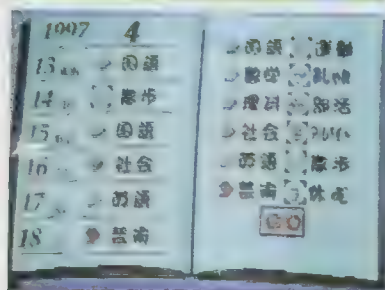 1997 4
13 国語
14 散歩
15 国語
16 社会
17 国語
18 芸術
国語 運動
数学
理科 部活
社会
英語 散歩
芸術 休む
GO